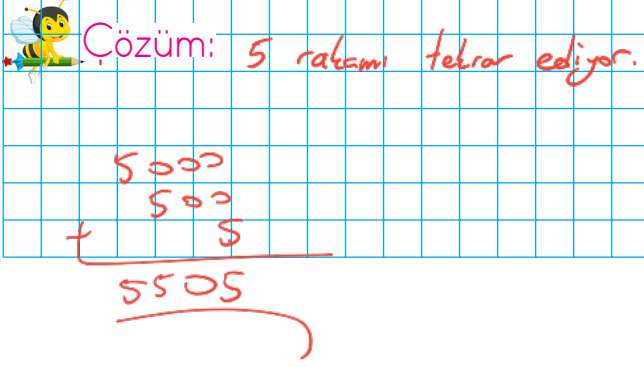 Çözüm: 5 rakamı tekrar ediyor.
5000
500
+ 5
5505